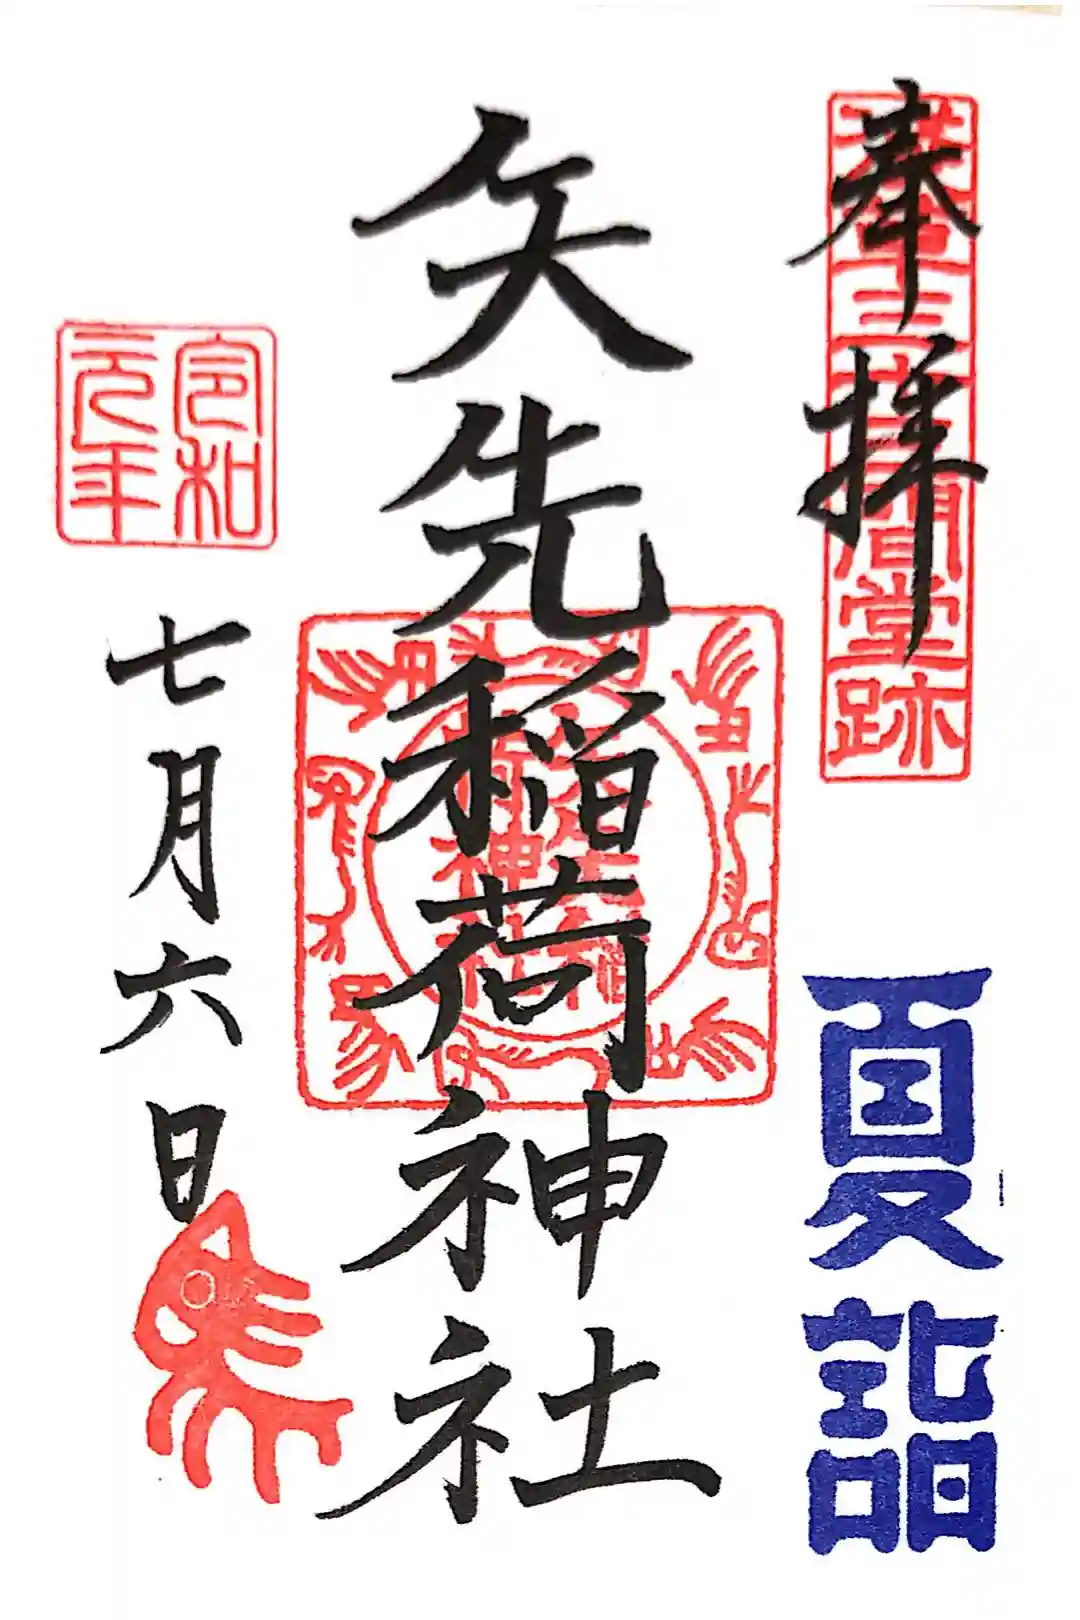 奉拝
三十三間堂跡
夏詣
矢先稲荷神社
令和
元年
七月六日